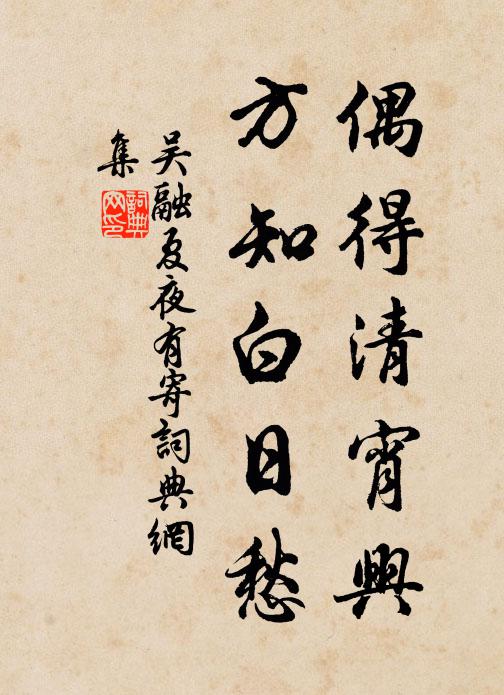 偶得清宵興
方知白日愁
吳融夏夜有寄詞典網
集
詞典
网印